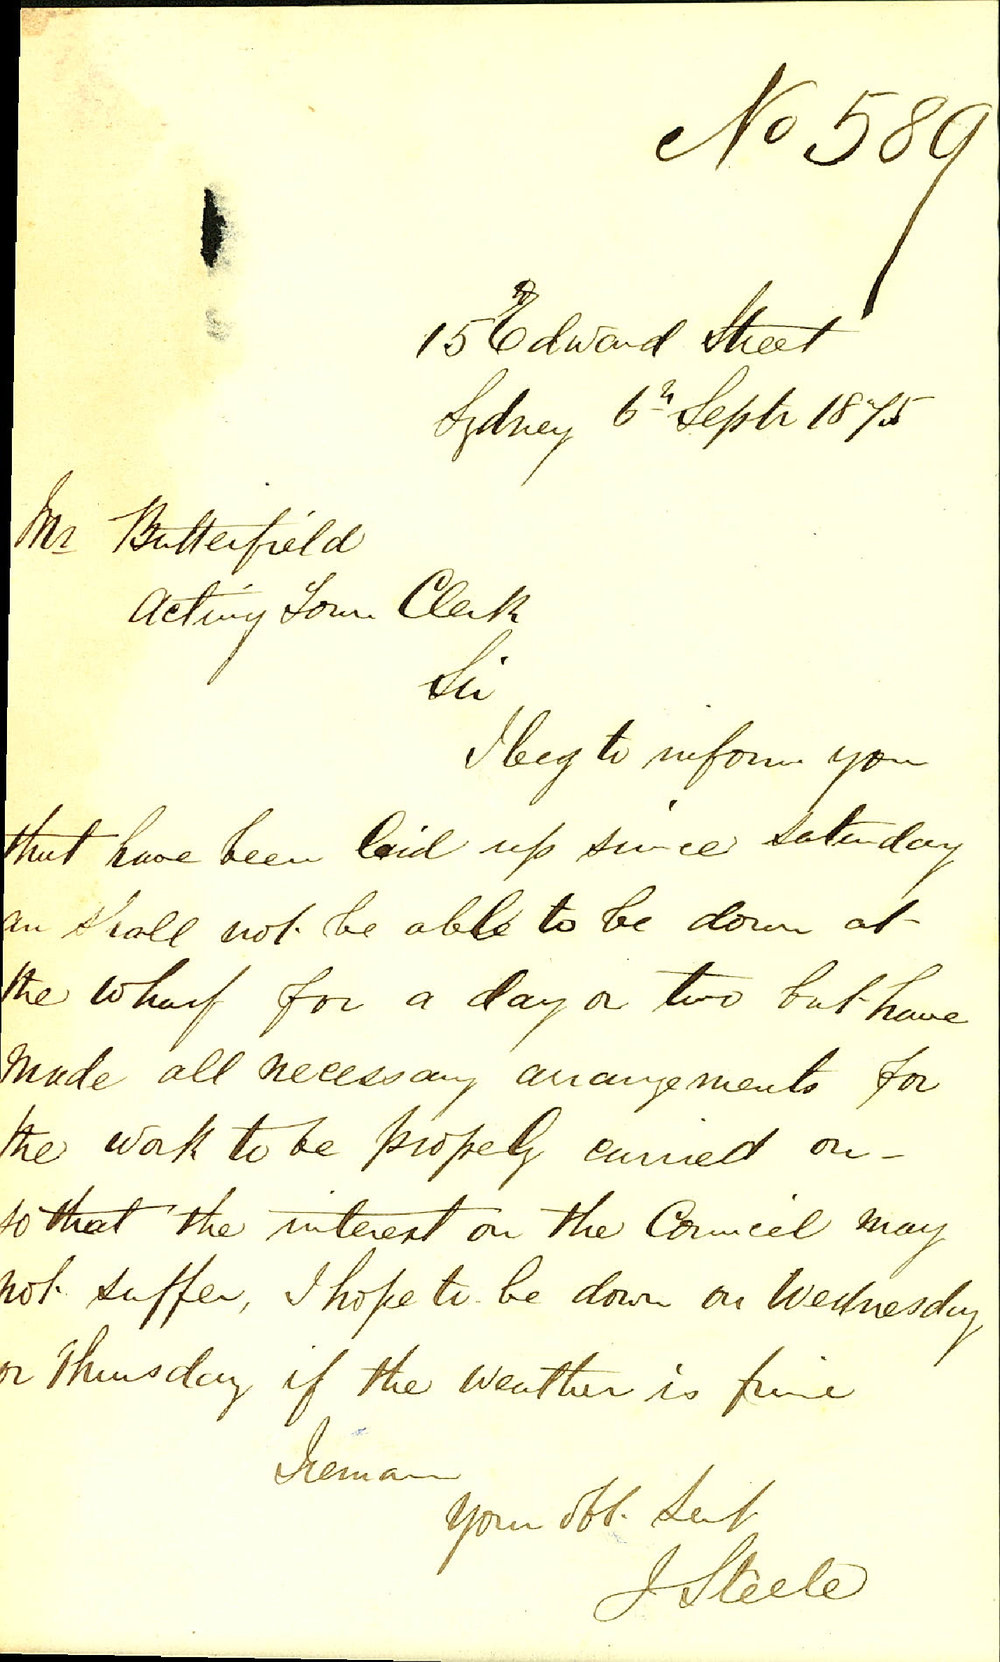 No 589
15 Edward Street
Sydney 6th Septr 1875
Mr Butterfield
Acting Town Clerk
Sir
I beg to inform you
that have been laid up since saturday
an shall not be able to be down at
the wharf for a day or two but have
made all necessary arrangements for
the work to be propely carried on -
so that the interest on the Council may
not suffer, I hope to be down on Wednesday
or Thursday if the weather is fine
I remain
Your obt. Sert
J Steele